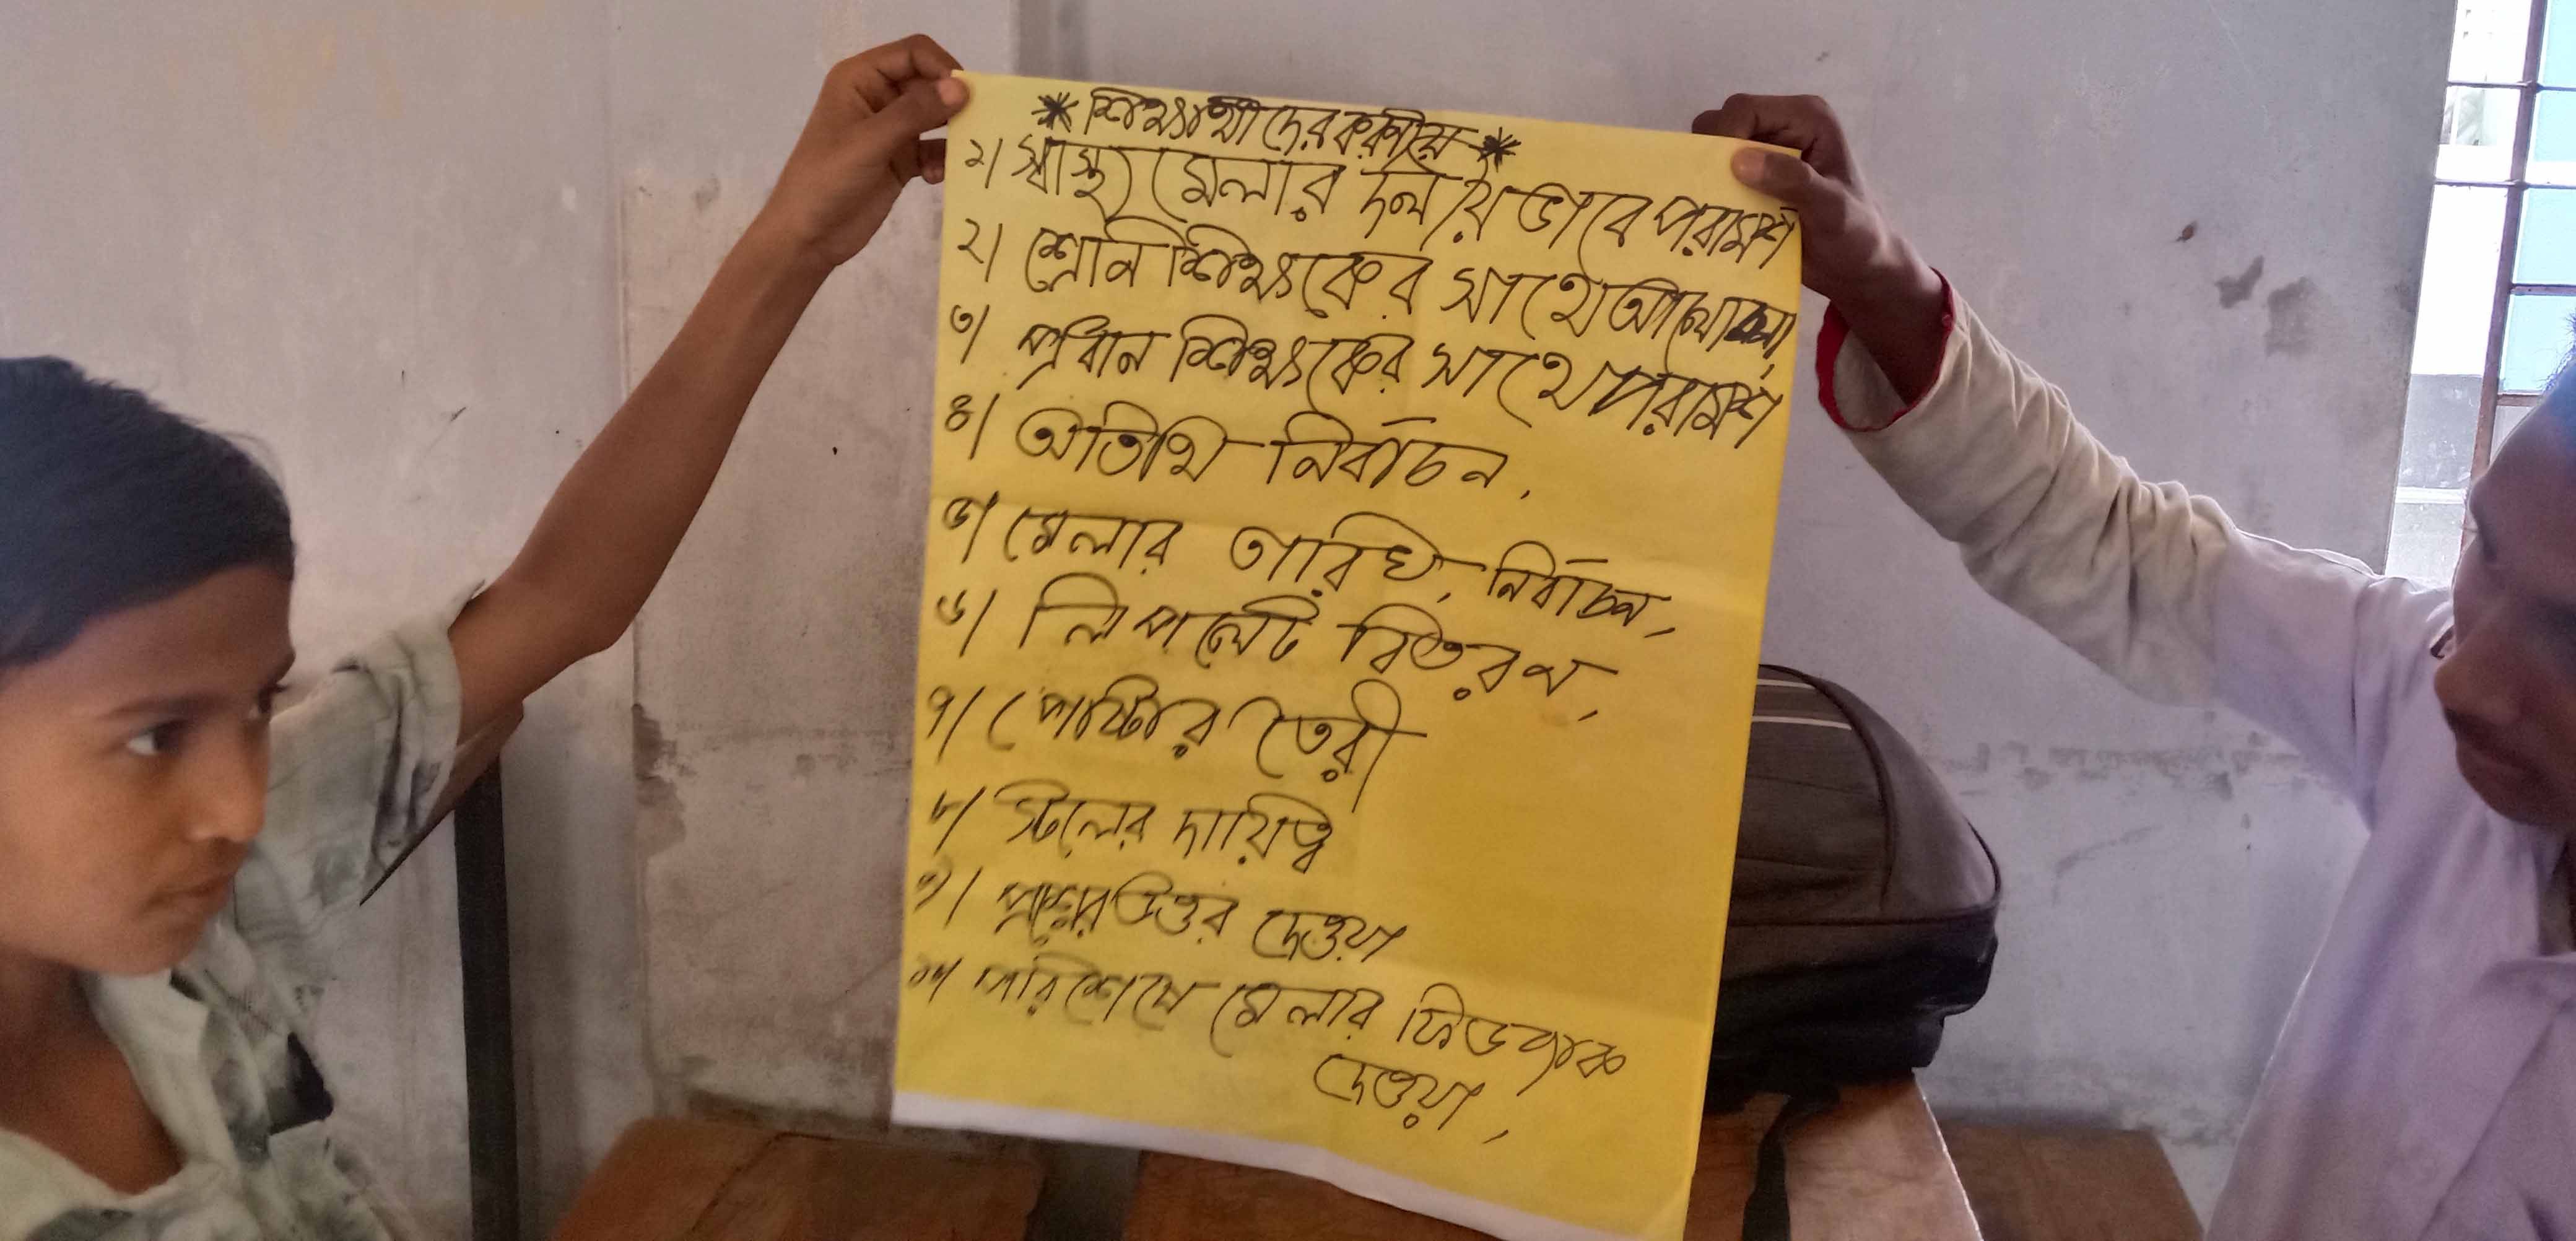 * শিক্ষার্থীদের করণীয় *
১। স্বাস্থ্য মেলার দলীয় ভাবে পরামর্শ
২। শ্রেনি শিক্ষকের সাথে আলোচনা,
৩। প্রধান শিক্ষকের সাথে পরামর্শ
৪। অতিথি নির্বাচন,
৫। মেলার তারিখ, নির্বাচন,
৬। লিপলেট বিতরণ,
৭। পোষ্টার তৈরী
৮। স্টলের দায়িত্ব
৯। প্রশ্নের উত্তর দেওয়া
১০। পরিশেষে মেলার ফিডব্যাক
দেওয়া,